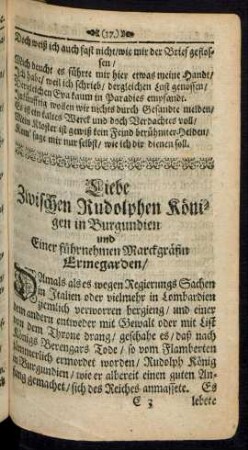 (17.)
Doch weiß ich auch fast nicht/wie mir der Brief geflos-
sen/
Mich deucht es führte mir hier etwas meine Handt/
Ich habe/ weil ich schrieb/ dergleichen Lust genossen/
Dergleichen Eva kaum in Paradies empfandt.
wollen wir nichts durch Gesandte melden/
Es ist ein kaltes Werck und doch Verdachtes voll/
Mein Kloster ist gewiß kein Feind berühmter Helden/
Kom' sage mir nur selbst/ wie ich dir dienen soll.
Liebe
Zwischen Rudolphen Köni-
gen in Burgundien
und
Einer führnehmen Marckgräfin
Ermegarden/
DAmals als es wegen Regierungs Sachen
in Italien oder vielmehr in Lombardien
ziemlich verworren hergieng/ und einer
den andern entweder mit Gewalt oder mit List
von dem Throne drang/ geschahe es/ daß nach
Königs Berengars Tode/ so vom Flamberten
jämmerlich ermordet worden/ Rudolph König
in Burgundien/ wie er allbereit einen guten An-
fang gemachet/ sich des Reiches anmassete. Es
E 3 lebete